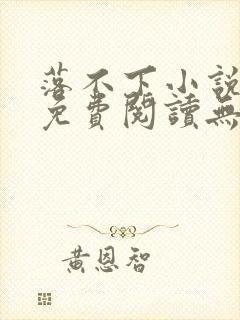 落不下小說
免費閱讀無
黃恩智